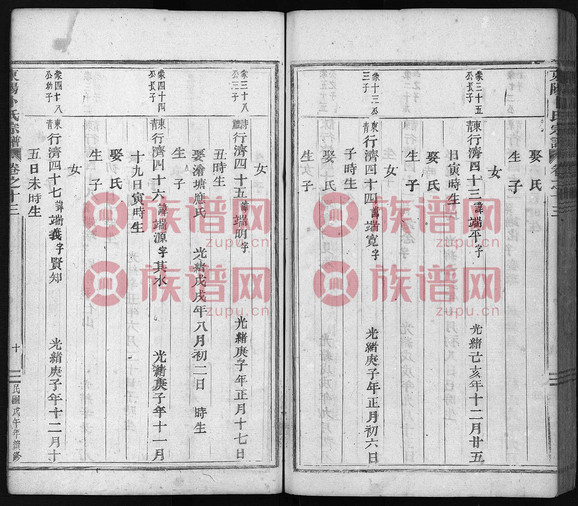 象三十五
公長子
東青行濟四十三諱端平字 光緒己亥年十二月廿五
日寅時生
娶 氏
生子
女
象十三公
三子
行濟四十四諱端寬字 光緒庚子年正月初六日
子時生
娶 氏
生子
女
象三十八
公三子
行濟四十五諱端明字 光緒庚子年正月十七日
丑時生
娶滄塘應氏 光緒戊戌年八月初二日 時生
生子
女
象四十四
公長子
東青行濟四十六諱端源字其水 光緒庚子年十一月
十九日寅時生
娶 氏
生子
女
象四十八
公幼子
東青行濟四十七諱端義字賢知 光緒庚子年十二月十
五日未時生
卷之十三
十
民國戊午年續修
族谱网
zupu.cn
族谱网
zupu.cn
族谱网
zupu.cn
族谱网
zupu.cn
族谱网
zupu.cn
族谱网
zupu.cn